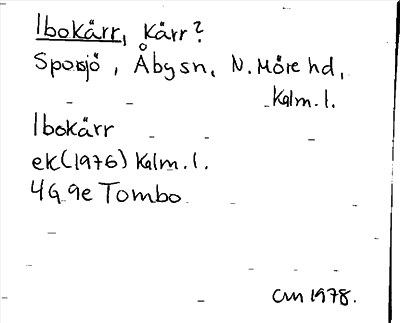 Ibokärr, kärr?
Sporsjö, Åby sn, N. Möre hd,
Kalm. l.
Ibokärr
ek (1976) Kalm. l.
4G 9e Tombo
CM 1978.